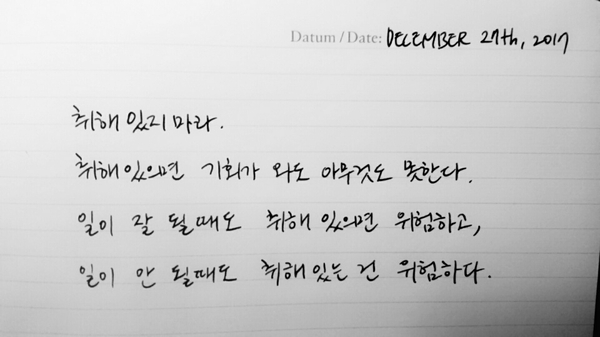 Datum / Date: DECEMBER 27th, 2017
취해있지 마라.
취해있으면 기회가 와도 아무것도 못한다.
일이 잘 될때도 취해 있으면 위험하고,
일이 안 될때도 취해있는 건 위험하다.